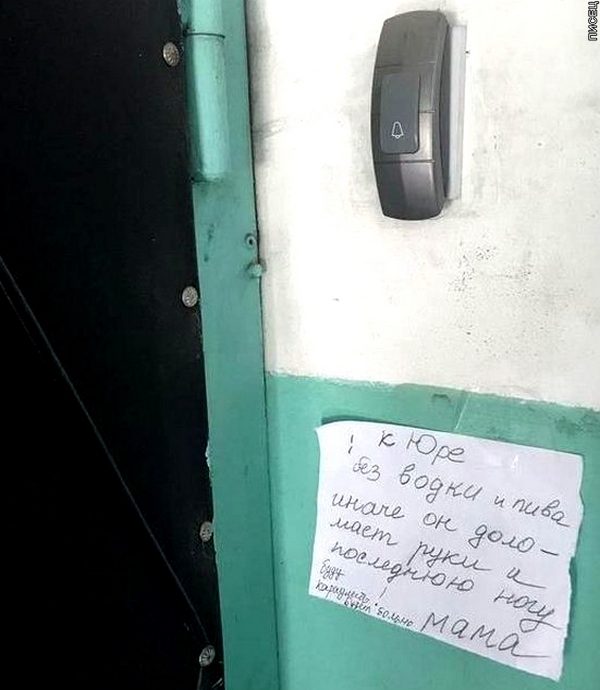 ПИСЕЦ
! к Юре
без водки и пива
иначе он доло-
мает руки и
последнюю ногу
буду !
караулить
будет больно мама